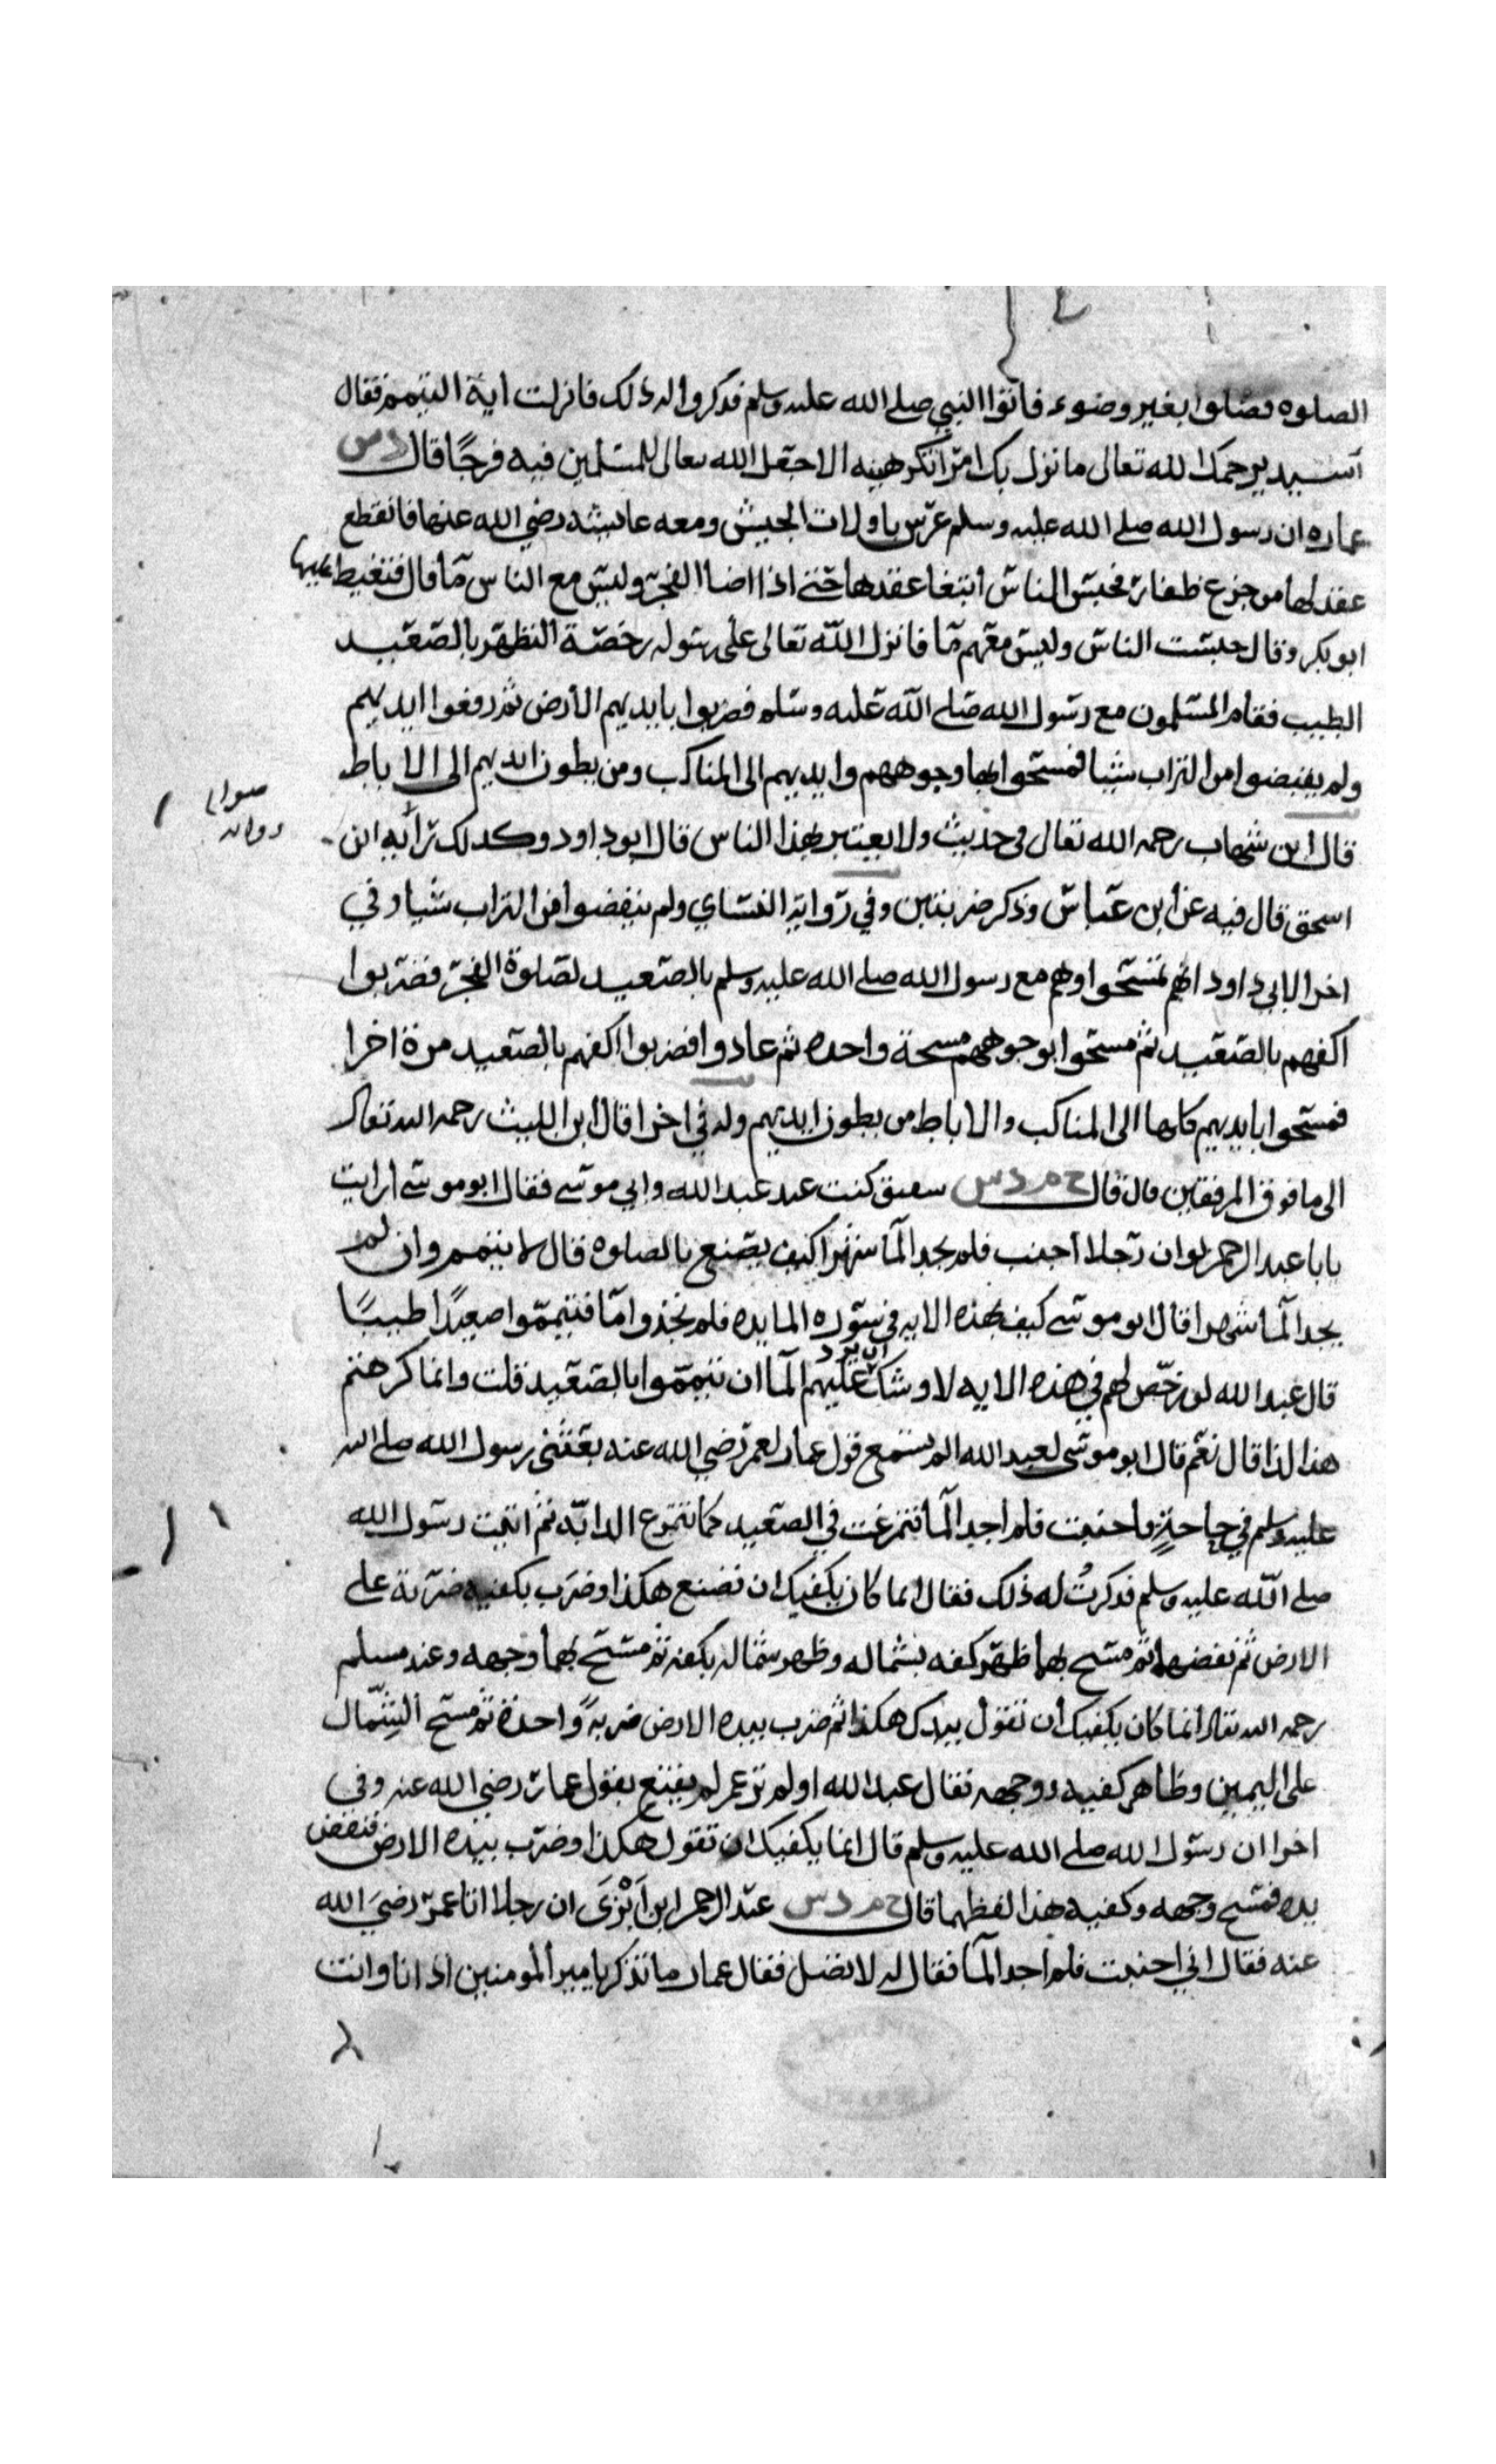 الصلوه فصلوا بغير وضوء فاتوا النبي صلى الله عليه وسلم فذكروا له ذلك فانزلت اية التيمم فقال
اسيد يرحمك الله تعالى ما نزل بك امر تكرهينه الا جعل الله تعالى للمسلمين فيه فرجًا قال د س
عماره ان رسول الله صلى الله عليه وسلم عرس باولات الجيش ومعه عايشه رضي الله عنها فانقطع
عقد لها من جزع ظفار فحبس الناس ابتغا عقدها حتى اذا اضا الفجر وليس مع الناس ما قال فتغيظ عليها
ابو بكر وقال حبست الناس وليس معهم ما فانزل الله تعالى على رسوله رخصة التطهر بالصعيد
الطيب فقام المسلمون مع رسول الله صلى الله عليه وسلم فضربوا بايديهم الارض ثم رفعوا ايديهم
ولم يقبضوا من التراب شيا فمسحوا بها وجوههم وايديهم الى المناكب ومن بطون ايديهم الى الاباط
قال ابن شهاب رحمه الله تعالى في حديث ولا يعتبر بهذا الناس قال ابو داود وكذلك رايه ابن
صوابه
رواه
اسحق قال فيه عن ابن عباس وذكر ضربتين وفي رواية النساي ولم ينفضوا من التراب شيا وفي
اخرا لابي داود انهم تمسحوا وهم مع رسول الله صلى الله عليه وسلم بالصعيد لصلوة الفجر فضربوا
اكفهم بالصعيد ثم مسحوا بوجوههم مسحة واحده ثم عادوا فضربوا اكفهم بالصعيد مرة اخرا
فمسحوا بايديهم كلها الى المناكب والاباط من بطون ايديهم وله في اخرا قال ابن الليث رحمه الله تعالى
الى ما فوق المرفقين قال قال خ م د س شقيق كنت عند عبد الله وابي موسى فقال ابو موسى ارايت
يابا عبد الرحمن لو ان رجلا اجنب فلم يجد الما شهرا كيف يصنع بالصلوه قال لا يتيمم وان لم
يجد الما شهرا قال ابو موسى كيف بهذه الايه في سورة المايده فلم تجدوا ما فتيمموا صعيدًا طيبًا
قال عبد الله لو رخص لهم في هذه الايه لاوشك ان برد عليهم الما ان تيمموا بالصعيد قلت وانما كرهتم
هذا لذا قال نعم قال ابو موسى لعبد الله الم تسمع قول عمار لعمر رضي الله عنه بعثني رسول الله صلى الله
عليه وسلم في حاجة فاجنبت فلم اجد الما فتمرغت في الصعيد كما تتمرغ الدابة ثم اتيت رسول الله
صلى الله عليه وسلم فذكرتُ له ذلك فقال انما كان يكفيك ان تصنع هكذا وضرب بكفيه ضربة على
الارض ثم نفضها ثم مسح بها ظهر كفه بشماله وظهر شماله بكفه ثم مسح بهما وجهه وعند مسلم
رحمه الله تعالى انما كان يكفيك ان تقول بيدك هكذا ثم ضرب بيده الارض ضربةً واحدة ثم مسح الشمال
على اليمين وظاهر كفيه ووجهه فقال عبد الله اولم تر عمر لم يقنع بقول عمار رضي الله عنه وفي
اخرا ان رسول الله صلى الله عليه وسلم قال انما يكفيك ان تقول هكذا وضرب بيده الارض فنفض
يده فمسح وجهه وكفيه هذا لفظهما قال خ م د س عبد الرحمن ابن اَبْزَى ان رجلا اتا عمر رضي الله
عنه فقال اني اجنبت فلم اجد الما فقال له لا تصل فقال عمار ما تذكر يا مير المومنين اذ انا وانت